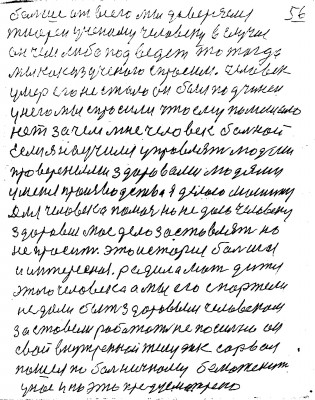 56
больше от всего мы доверяем
тпареи ученому человеку в случае
он чем либо подведет это тогда
мы как из ученого спросим. человек
умер его не стало он был подчинен
у него мы спросили что ему помешало
нет зачем мне человек больной
сем я научился управлять людьми
проверенными здоровыми людьми
у меня производства я делаю машину
для человека помочь но не дают человеку
здоровья мое дело заставлять но
не просить. это история большая
и интересная. родила мать дитя
этого человека а мы его спортели
не дали быть здоровым человеком
заставили работать не посильно он
свой внутренной желудок сорвал
пошел по больничному бюллетень
упал и по это предусмотрело